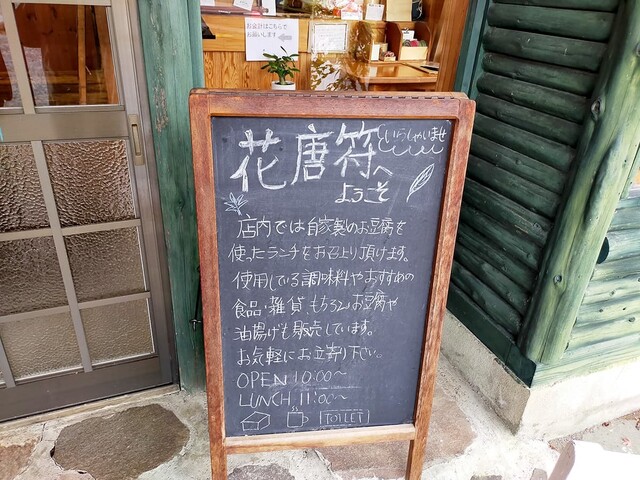 お会計はこちらで
お願いします
花唐符へ
いらっしゃいませ
ようこそ
店内では自家製のお豆腐を
使ったランチをお召上り頂けます。
使用している調味料やおすすめの
食品・雑貨、もちろんお豆腐や
油揚げも販売しています。
お気軽にお立寄り下さい。
OPEN 10:00〜
LUNCH 11:00〜
TOILET